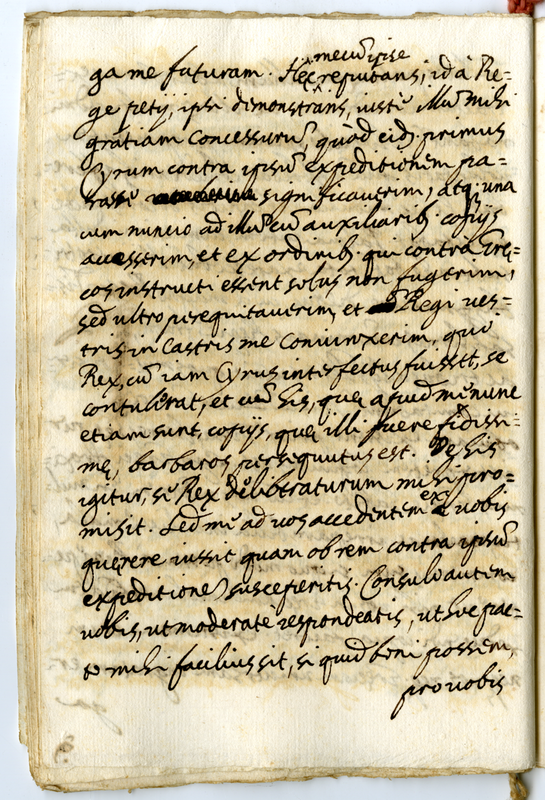 mecũ ipse
ga me futuram. Hęc reputans, id à Re-
ge petij, ipsi demonstrãns, iustè illũ mihi
gratiam concessurũ, quòd eidẽ primus
Cyrum contra ipsũ expeditionem pa-
rasse significauerim, atq; una
cum nuncio ad illũ cũ auxiliarib. copijs
accesserim, et ex ordinib. qui contra Gre-
cos instructi essent solus non fugerim,
sed ultro perequitauerim, et Regi ues-
tris in castris me coniunxerim, quò
Rex, cũ iam Cyrus interfectus fuisset, se
contulerat, et cum his, quę apud me nunc
etiam sunt, copijs, quę illi fuere fidissi-
mę, barbaros persequutus est. De his
igitur, se Rex deliberaturum mihi pro-
misit. Sed me ad uos accedentem ex uobis
quęrere iussit quam ob rem contra ipsũ
expeditionẽ susceperitis. Consulo autem
uobis, ut moderatè respondeatis, ut hoc pac-
to mihi facilius sit, si quid boni possem,
pro uobis